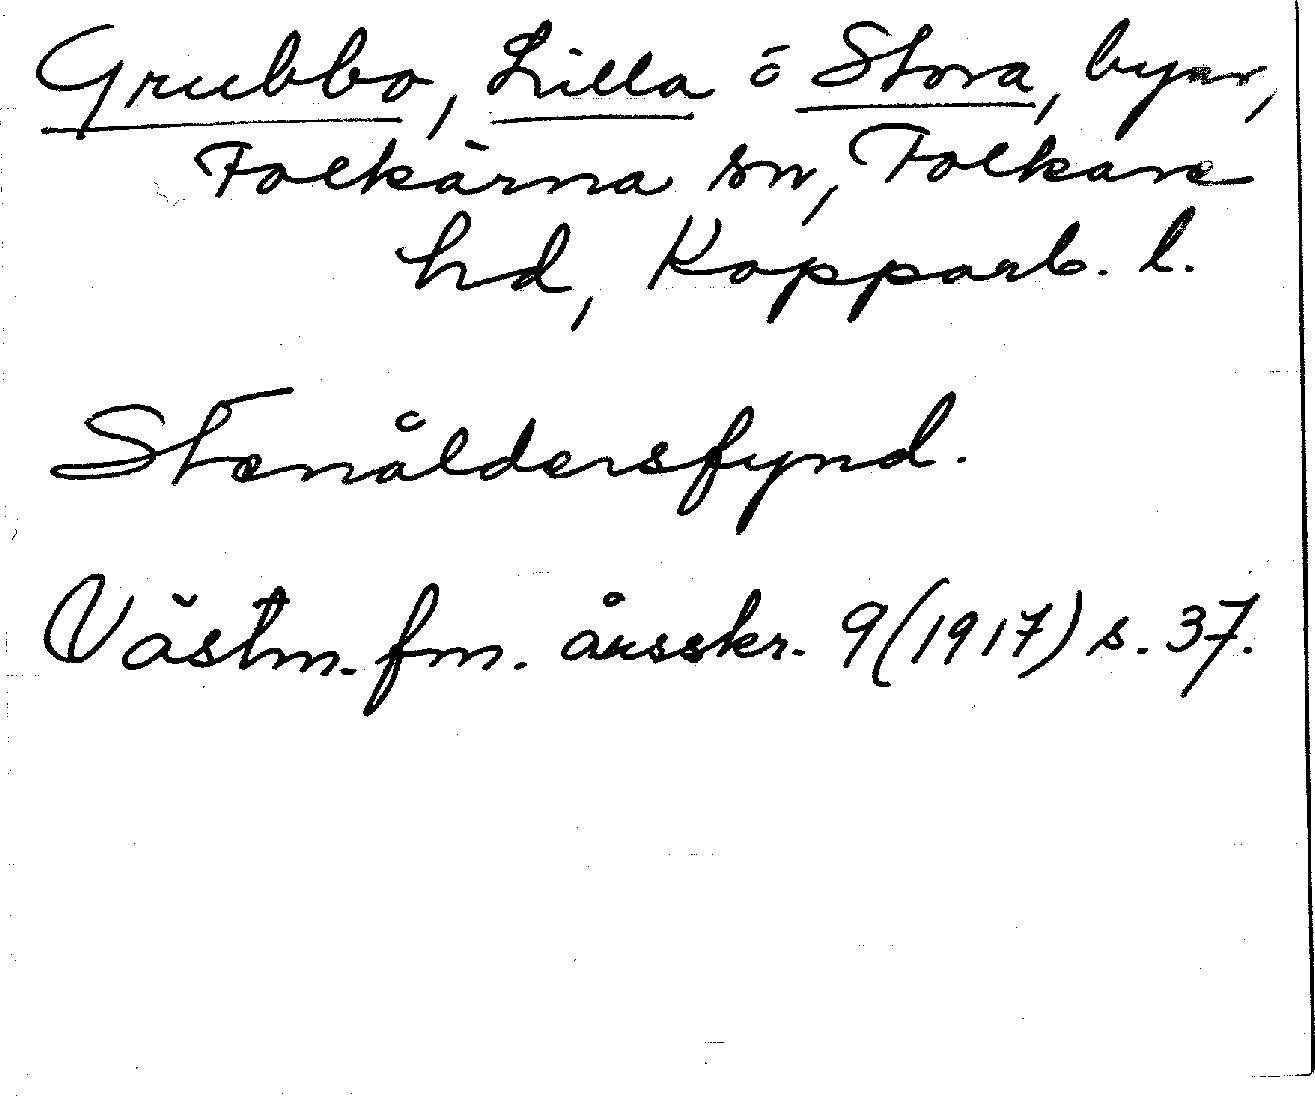 Grubbo, Lilla o Stora, byar,
Folkärna sn, Folkare
hd, Kopparb. l.
Stenåldersfynd.
Västm. fm. årsskr. 9 (1917) s. 37.